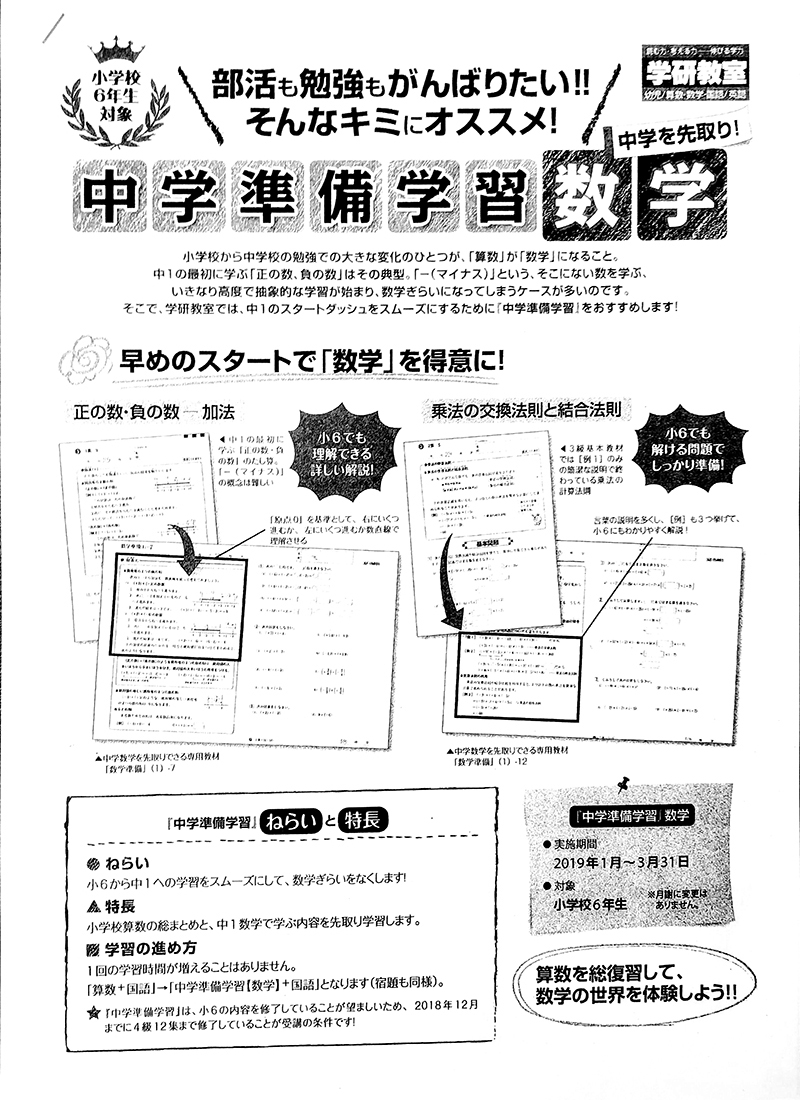 小学校
6年生
対象
部活も勉強もがんばりたい!!
そんなキミにオススメ!
読む力・考える力 伸びる学力
学研教室
幼児/算数・数学・国語/英語
中学を先取り!
中学準備学習 数学
小学校から中学校の勉強での大きな変化のひとつが、「算数」が「数学」になること。
中1の最初に学ぶ「正の数、負の数」はその典型。「−(マイナス)」という、そこにない数を学ぶ、
いきなり高度で抽象的な学習が始まり、数学ぎらいになってしまうケースが多いのです。
そこで、学研教室では、中1のスタートダッシュをスムーズにするために『中学準備学習』をおすすめします!
早めのスタートで「数学」を得意に!
正の数・負の数 ― 加法
◀中1の最初に
学ぶ「正の数・負
の数」のたし算。
「−(マイナス)」
の概念は難しい
小6でも
理解できる
詳しい解説!
「原点0」を基準として、右にいくつ
進むか、左にいくつ進むか数直線で
理解させる
▲中学数学を先取りできる専用教材
「数学準備」(1)-7
乗法の交換法則と結合法則
◀3級基本教材
では[例1]のみ
の簡潔な説明で終
わっている乗法の
計算法則
小6でも
解ける問題で
しっかり準備!
言葉の説明を多くし、[例]も3つ挙げて、
小6にもわかりやすく解説!
基本問題
▲中学数学を先取りできる専用教材
「数学準備」(1)-12
『中学準備学習』ねらいと特長
ねらい
小6から中1への学習をスムーズにして、数学ぎらいをなくします!
特長
小学校算数の総まとめと、中1数学で学ぶ内容を先取り学習します。
学習の進め方
1回の学習時間が増えることはありません。
「算数+国語」→「中学準備学習【数学】+国語」となります(宿題も同様)。
『中学準備学習』は、小6の内容を修了していることが望ましいため、2018年12月
までに4級12集まで修了していることが受講の条件です!
『中学準備学習』数学
●実施期間
2019年1月〜3月31日
●対象
小学校6年生
※月謝に変更は
ありません。
算数を総復習して、
数学の世界を体験しよう!!